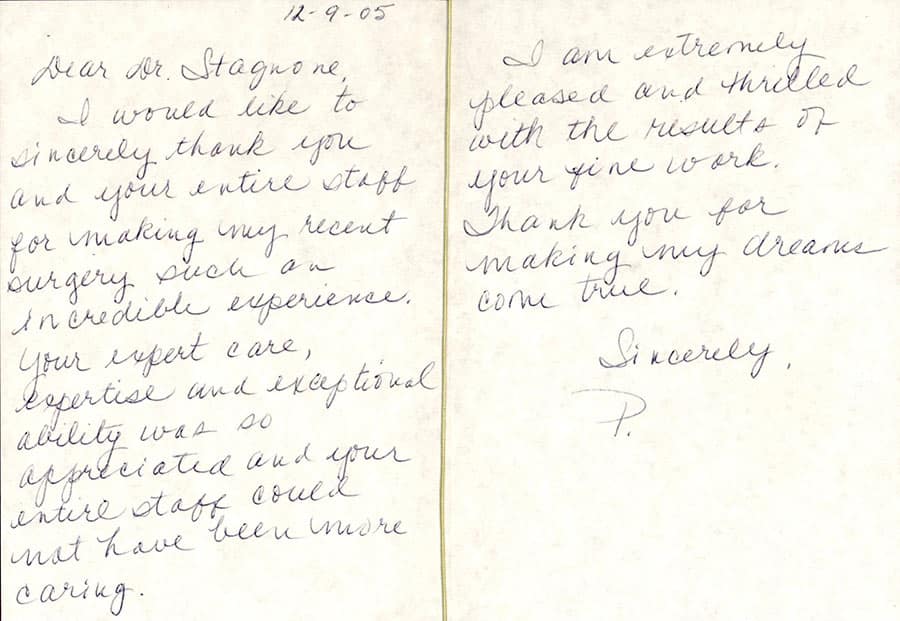 12-9-05
Dear Dr. Stagnone,
I would like to
sincerely thank you
and your entire staff
for making my recent
surgery such an
incredible experience.
Your expert care,
expertise and exceptional
ability was so
appreciated and your
entire staff could
not have been more
caring.
I am extremely
pleased and thrilled
with the results of
your fine work.
Thank you for
making my dreams
come true.
Sincerely,
P.